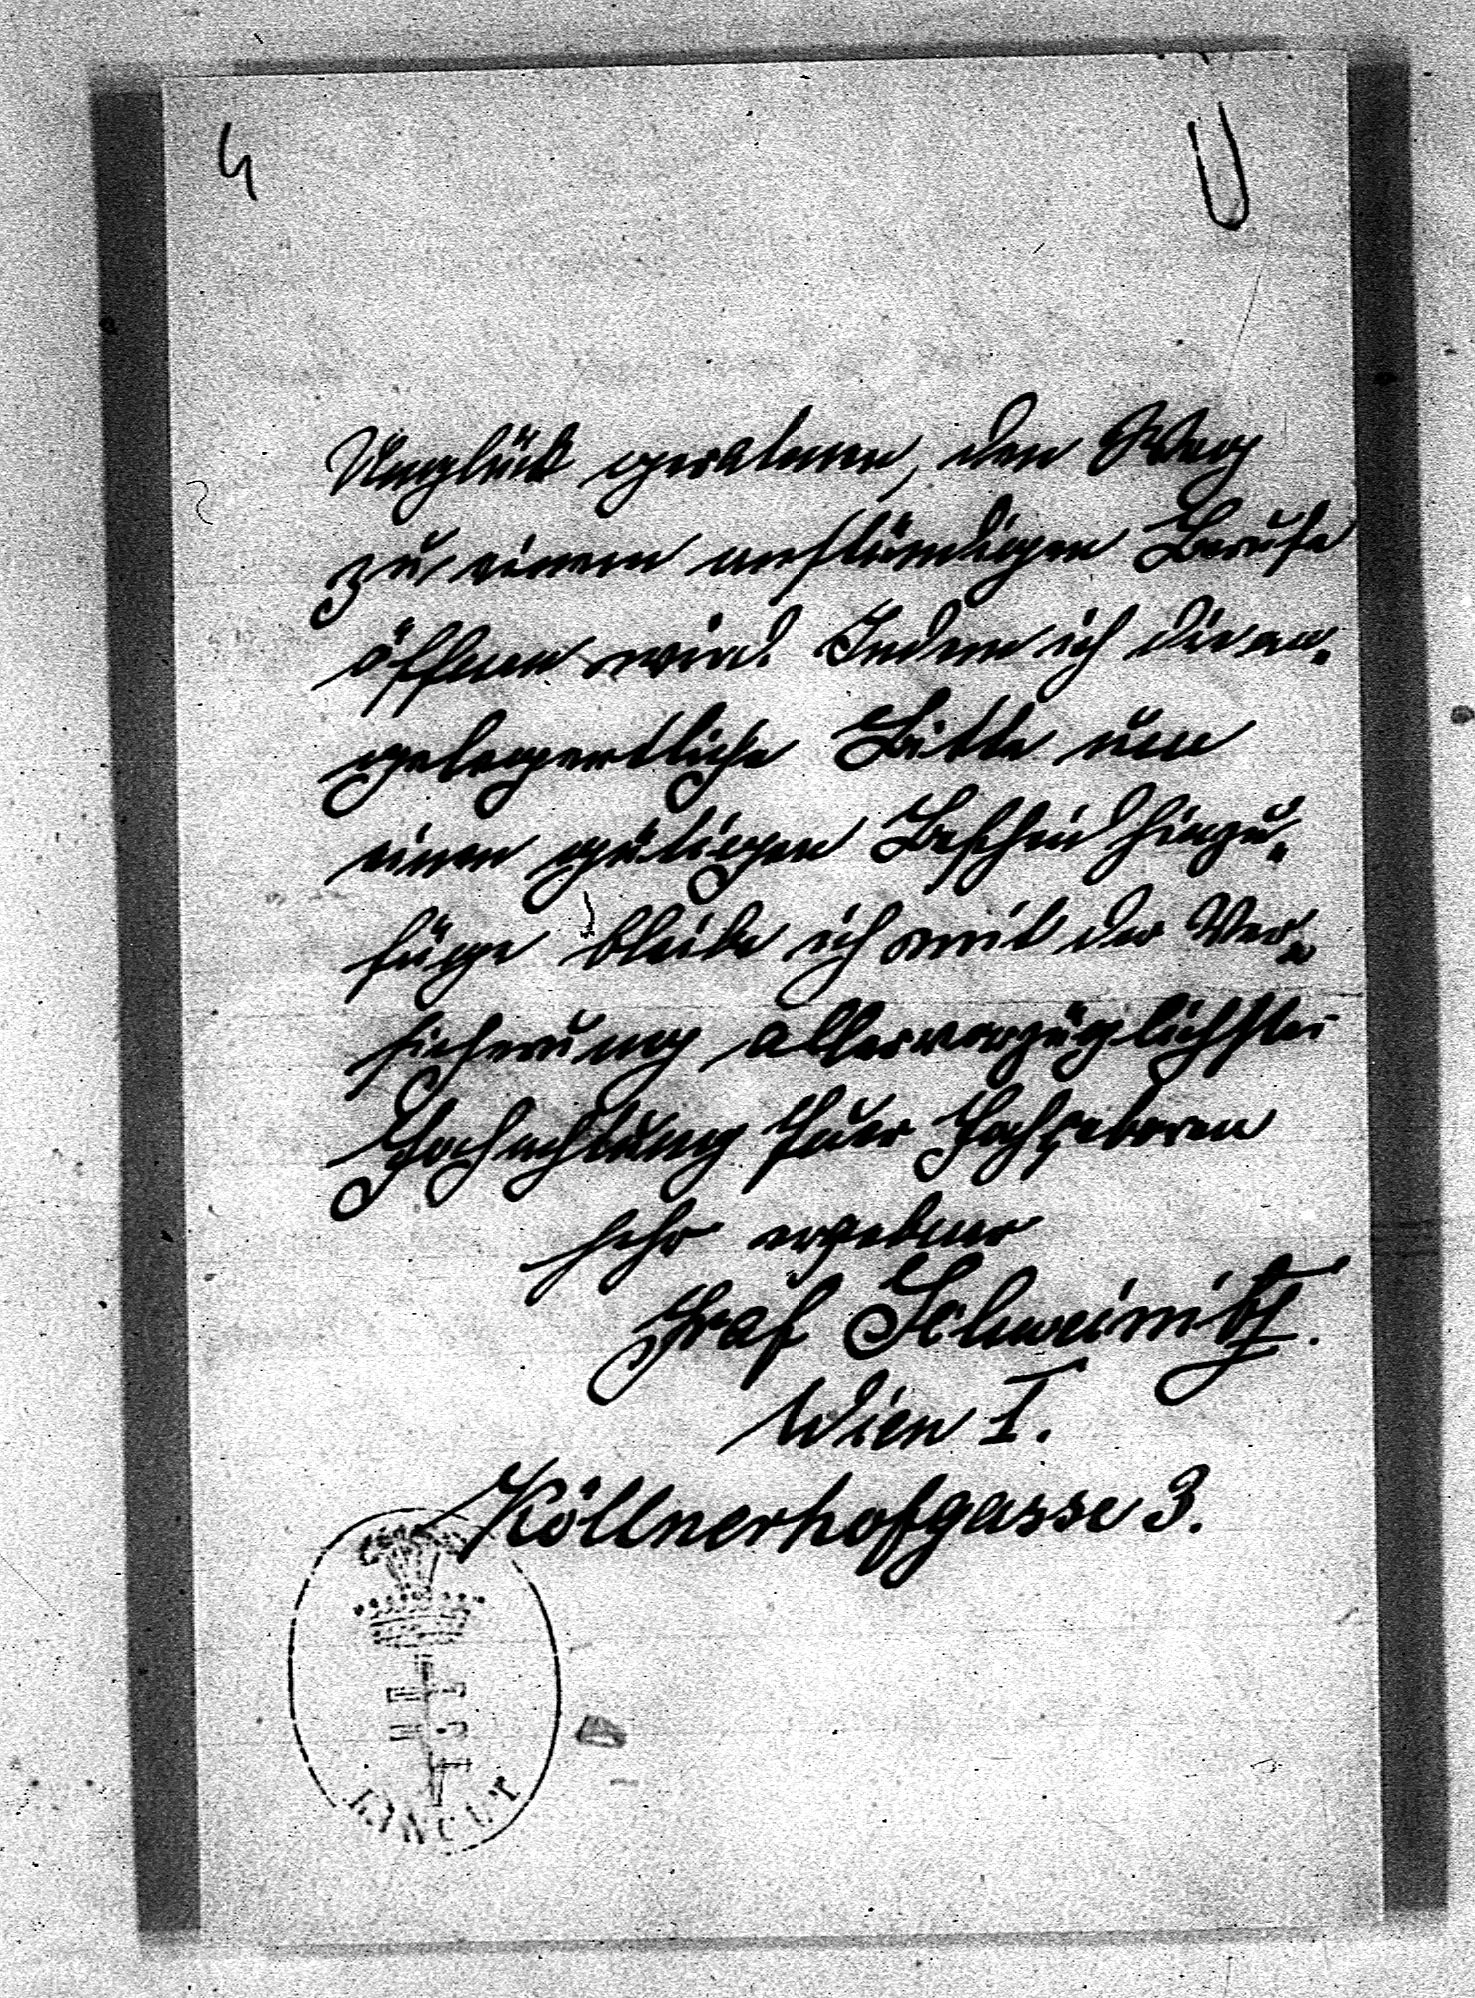 4
Unglück geratenen, den Weg
zu einem anständigen Berufe
öffnen wird. Indem ich die an-
gelegentliche Bitte um
einen gütigen Bescheid hinzu-
füge bleibe ich mit der Ver-
sicherung allervorzüglichster
Hochachtung Euer Hochgeboren
sehr ergebener
Graf Schweinitz.
Wien I.
Köllnerhofgasse 3.
ŁAŃCUT